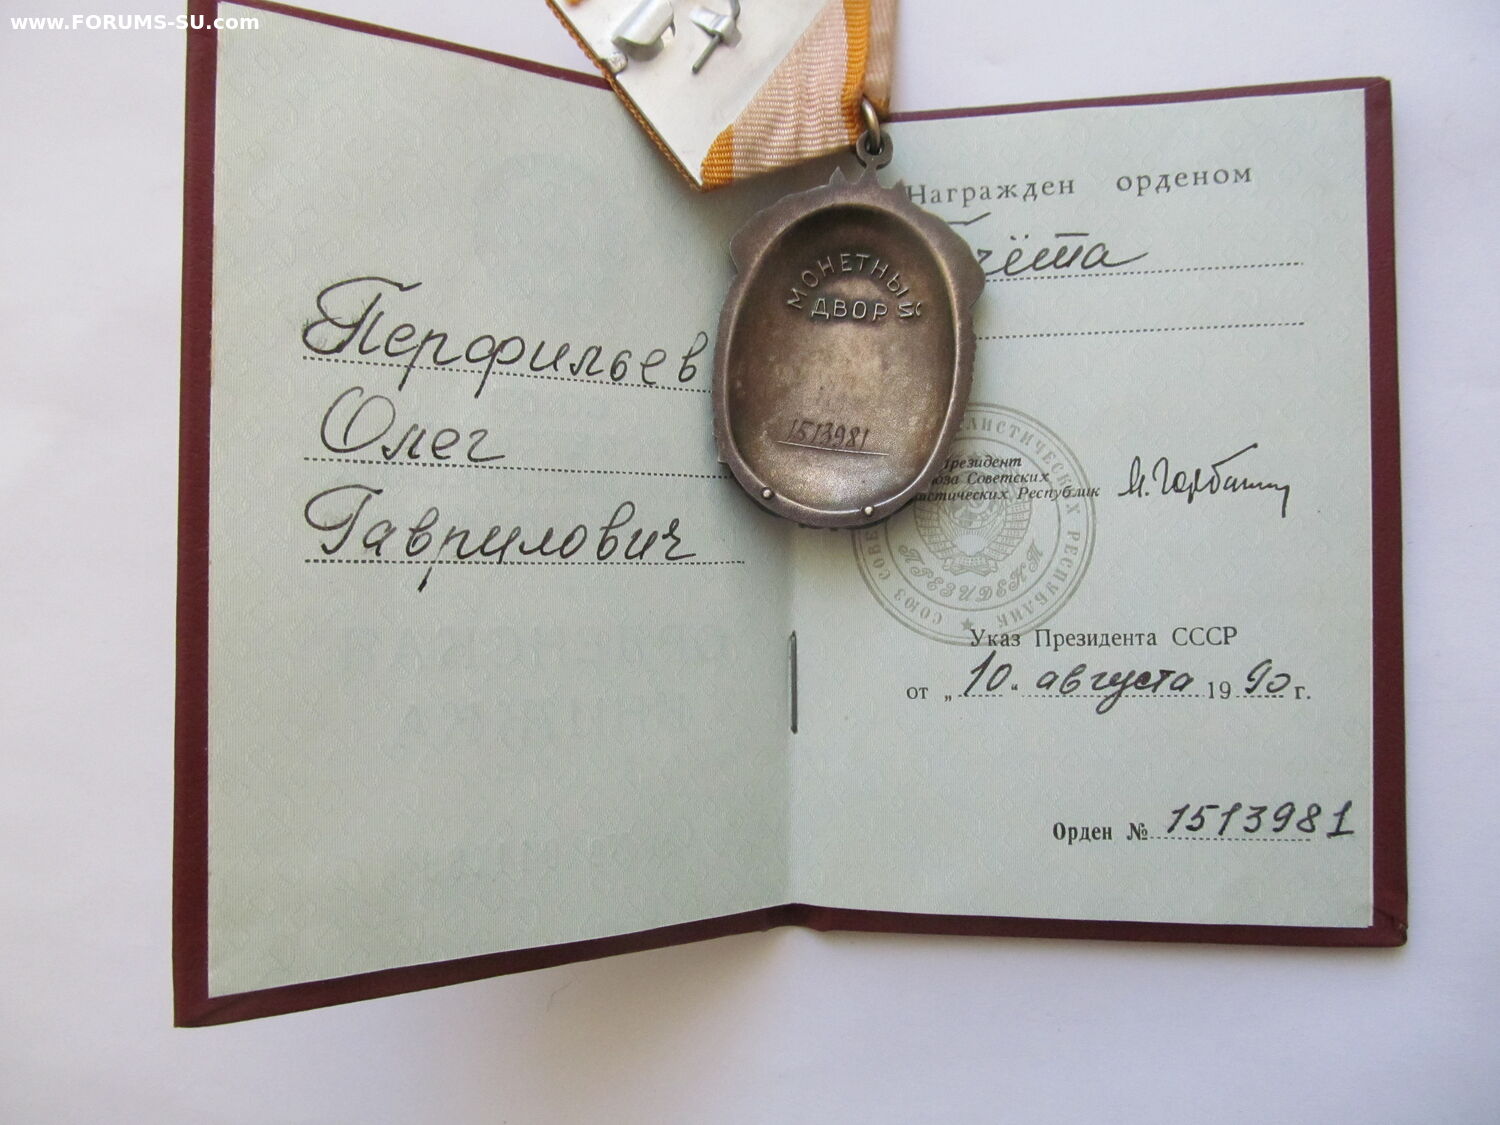 www.FORUMS-SU.com
Перфильев
Олег
Гаврилович
МОНЕТНЫЙ
ДВОР
1513981
Награжден орденом
чёта
Президент
юза Советских
истических Республик
М. Горбачев
СОЮЗ СОВЕ ЛИСТИЧЕСКИХ РЕСПУБЛИК
ПРЕЗИДЕНТ
Указ Президента СССР
от „10“ августа 1990 г.
Орден № 1513981